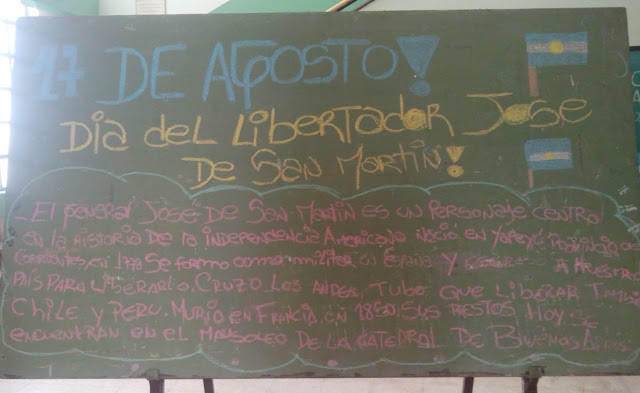 17 DE AGOSTO!
Dia del Libertador Jose
De San Martin!
El general José De San Martin es un Personaje Central
en la Historia De la independencia Americana Nació en Yapeyú provincia de
corrientes, en Se formo como militar en España y regreso A nuestro
País Para liberarlo. Cruzo Los Andes, Tubo que liberar
Chile y Peru. Murio en Francia en 1850. Sus restos Hoy se
encuentran en el Mausoleo De la Catedral De Buenos Aires